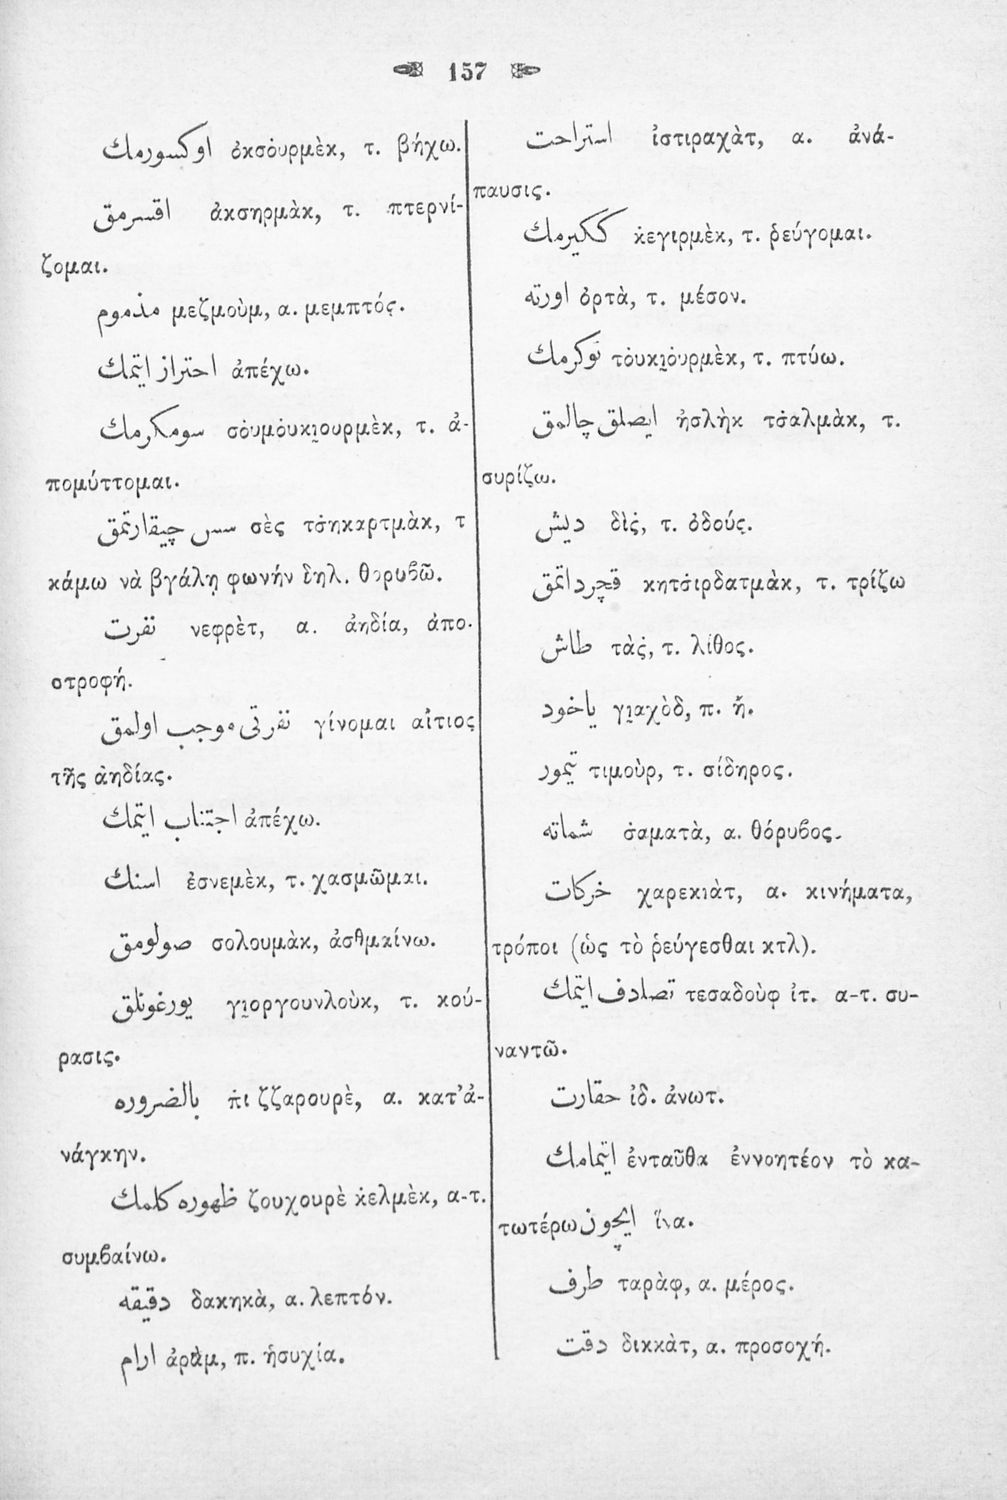 157
اوكسورمك ὀκσὀυρμὲκ, τ. βήχω.
اقسرمق ἀκσηρμὰκ, τ. πτερνί-
ζομαι.
مذموم μεζμοὺμ, α. μεμπτός.
احتراز ايتمك ἀπέχω.
سومكرمك σὀυμὀυκιουρμὲκ, τ. ἀ-
πομύττομαι.
سس چيقارتمق σὲς τσ̇ηκαρτμὰκ, τ
κάμω νὰ βγάλῃ φωνήν δηλ. θορυβῶ.
نفرت νεφρὲτ, α. ἀηδία, ἀπο-
στροφή.
نفرتى موجب اولمق γίνομαι αἴτιος
τῆς ἀηδίας.
اجتناب ايتمك ἀπέχω.
اسنمك ἐσνεμὲκ, τ. χασμῶμαι.
صولومق σολουμὰκ, ἀσθμαίνω.
يورغونلق γιοργουνλοὺκ, τ. κού-
ρασις.
بالضروره π̇ι ζζαρουρὲ, α. κατ’ἀ-
νάγκην.
ظهوره كلمك ζουχουρὲ κ̇ελμὲκ, α-τ.
συμβαίνω.
دقيقه δακηκὰ, α. λεπτόν.
ارام ἀρὰμ, π. ἡσυχία.
استراحت ἰστιραχὰτ, α. ἀνά-
παυσις.
ككيرمك κ̇εγιρμὲκ, τ. ῥεύγομαι.
اورته ὀρτὰ, τ. μέσον.
توكرمك τὀυκιὀυρμὲκ, τ. πτύω.
ايصلق چالمق ἠσλὴκ τσ̇αλμὰκ, τ.
συρίζω.
ديش δὶς̇, τ. ὀδούς.
قچرداتمق κητσ̇ιρδατμὰκ, τ. τρίζω
طاش τὰς̇, τ. λίθος.
ياخود γιαχὸδ, π. ἤ.
تيمور τιμοὺρ, τ. σίδηρος.
شماته σ̇αματὰ, α. θόρυβος.
خركات χαρεκιὰτ, α. κινήματα,
τρόποι (ὡς τὸ ῥεύγεσθαι κτλ).
تصادف ايتمك τεσαδοὺφ ἰτ. α-τ. συ-
ναντῶ.
حقارت ἰδ. ἀνωτ.
ايتمامك ἐνταῦθα ἐννοητέον τὸ κα-
τωτέρω ايچون ἵνα.
طرف ταρὰφ, α. μέρος.
دقت δικκὰτ, α. προσοχή.